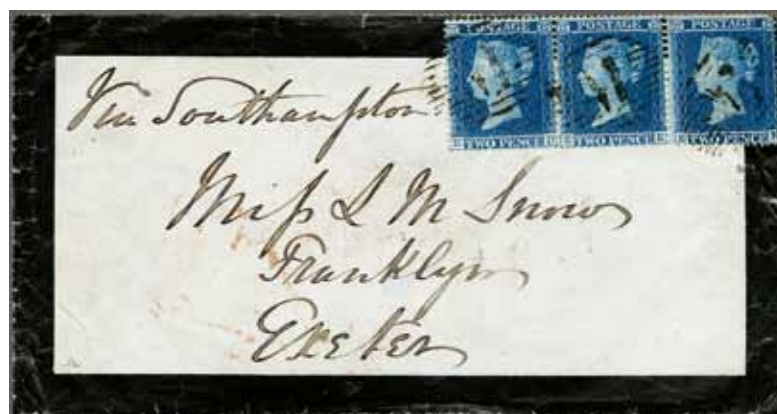 POSTAGE POSTAGE POSTAGE
TWO PENCE TWO PENCE TWO PENCE
Via Southampton
Miss L M Snow
Franklyn
Exeter